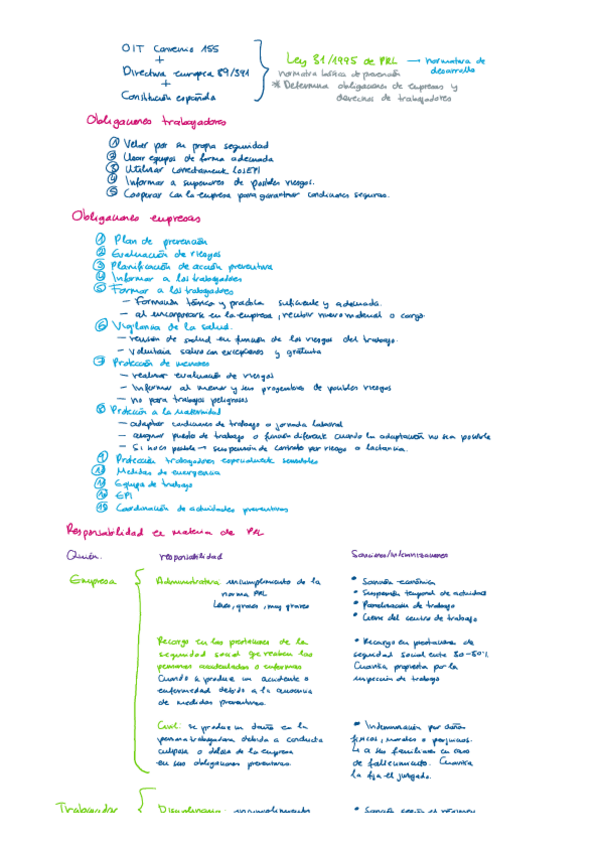 OIT Convenio 155
+
Directiva europea 89/391
+
Constitución española
Ley 31/1995 de PRL → normativa de desarrollo
normativa básica de prevención
* Determina obligaciones de empresas y derechos de trabajadores
Obligaciones trabajadores
① Velar por su propia seguridad
② Usar equipos de forma adecuada
③ Utilizar correctamente los EPI
④ Informar a superiores de posibles riesgos.
⑤ Cooperar con la empresa para garantizar condiciones seguras.
Obligaciones empresas
① Plan de prevención
② Evaluación de riesgos
③ Planificación de acción preventiva
④ Informar a los trabajadores
⑤ Formar a los trabajadores
— Formación teórica y práctica suficiente y adecuada.
— al incorporarse en la empresa, recibir nuevo material o cargo.
⑥ Vigilancia de la salud.
— revisión de salud en función de los riesgos del trabajo.
— voluntaria salvo con excepciones y gratuita
⑦ Protección de menores
— realizar evaluación de riesgos
— Informar al menor y sus progenitores de posibles riesgos
— no para trabajos peligrosos
⑧ Protección a la maternidad
— adaptar condiciones de trabajo o jornada laboral
— asignar puesto de trabajo o función diferente cuando la adaptación no sea posible
— Si no es posible → suspensión de contrato por riesgo o lactancia.
⑨ Protección trabajadores especialmente sensibles
Medidas de emergencia
Equipo de trabajo
EPI
Coordinación de actividades preventivas
Responsabilidad en materia de PRL
Quién. responsabilidad Sanciones/indemnizaciones
Empresa
Administrativa: incumplimiento de la
norma PRL
Leves, graves, muy graves
• Sanción económica
• Suspensión temporal de actividad
• Paralización de trabajo
• Cierre del centro de trabajo
Recargo en las prestaciones de la
seguridad social que reciben las
personas accidentadas o enfermas
Cuando se produce un accidente o
enfermedad debido a la ausencia
de medidas preventivas.
• Recargo en prestaciones de
seguridad social entre 30-50%
Cuantía propuesta por la
inspección de trabajo
Civil: se produce un daño en la
persona trabajadora debido a conducta
culposa o dolosa de la empresa
en sus obligaciones preventivas.
• Indemnización por daños
físicos, morales o perjuicios.
a sus familiares en caso
de fallecimiento. Cuantía
la fija el juzgado.
Trabajador
Disciplinaria: incumplimiento
• Sanción según el régimen